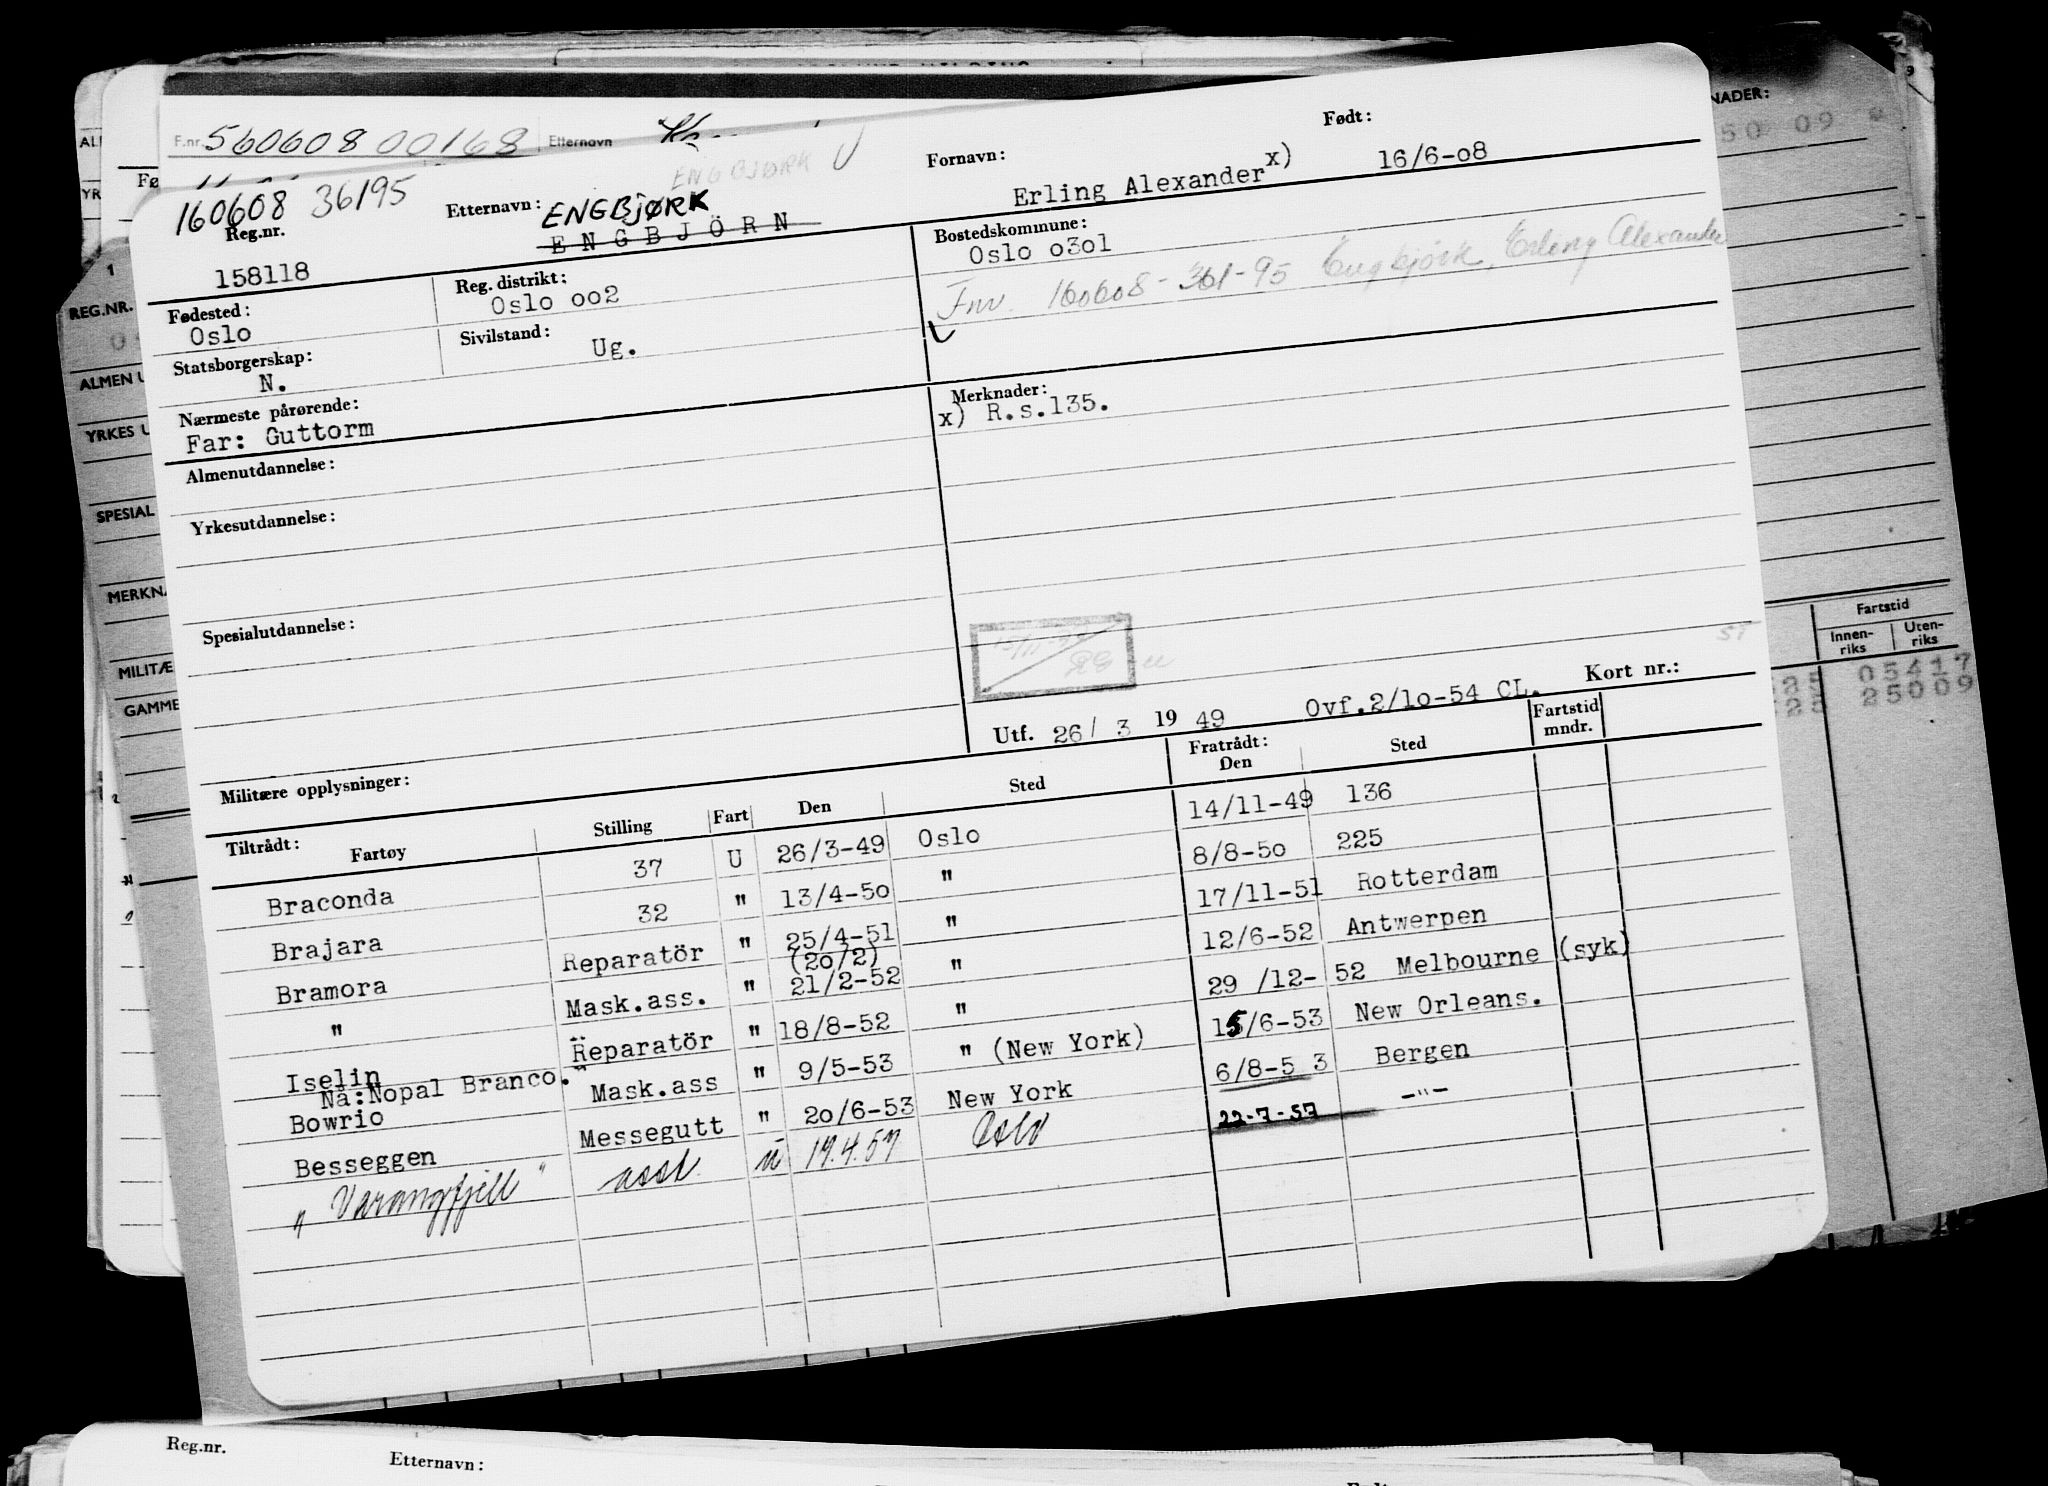 NADER:
50 09
F.nr. 560608 00168 Etternavn
ENGBJØRK
Født:
160608 36195 Etternavn: ENGBJØRK Fornavn: Erling Alexander x) 16/6-08
Reg.nr. ENGBJÖRN
158118 Reg. distrikt: Bostedskommune:
Oslo 002 Oslo 0301
Fødested: Fnr. 160608-361-95 Engbjørk, Erling Alexander
Oslo Sivilstand:
Statsborgerskap: Ug.
N.
Nærmeste pårørende: Merknader:
Far: Guttorm x) R.s.135.
Almenutdannelse:
Yrkesutdannelse:
Spesialutdannelse:
Utf. 26/ 3 19 49 Ovf.2/10-54 CL. Kort nr.:
Militære opplysninger:
Tiltrådt: Fratrådt: Fartstid
Fartøy Stilling Fart Den Sted Den Sted mndr.
Braconda 37 U 26/3-49 Oslo 14/11-49 136
Brajara 32 " 13/4-50 " 8/8-50 225
Bramora Reparatör " 25/4-51 " 17/11-51 Rotterdam
(20/2)
" Mask.ass. " 21/2-52 " 12/6-52 Antwerpen
Iselin Reparatör " 18/8-52 " 29 /12- 52 Melbourne (syk)
Nå:Nopal Branco."
Bowrio Mask.ass " 9/5-53 " (New York) 15/6-53 New Orleans.
Besseggen Messegutt " 20/6-53 New York 6/8-5 3 Bergen
" Varangfjell " asst. u 19.4.57 Oslo 22-7-57 -"-
REG.NR.
ALMEN U
YRKES U
SPESIAL
MERKNA
MILITÆ
GAMME
Fartstid
Innen- Uten-
riks riks
05417
25009
Reg.nr. Etternavn: